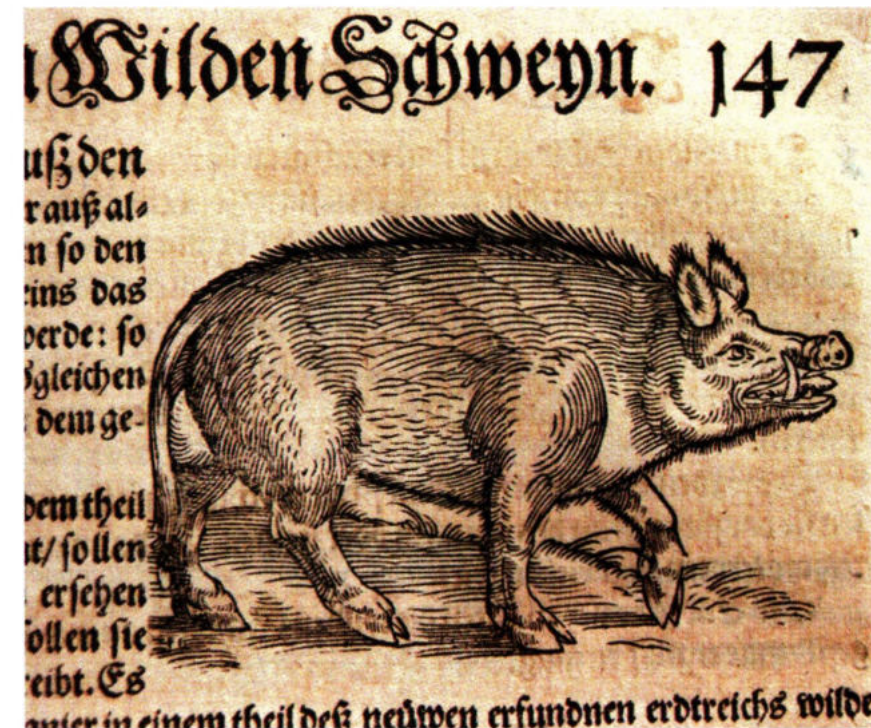 Wilden Schweyn. 147
ußden
r auß al⸗
n ſo den
eins das
werde: ſo
ßgleichen
dem ge⸗
dem theil
t/ ſollen
erſehen
ſollen ſie
reibt. Es
anier in einem theil deß neüwen erfundnen erdtreichs wilde